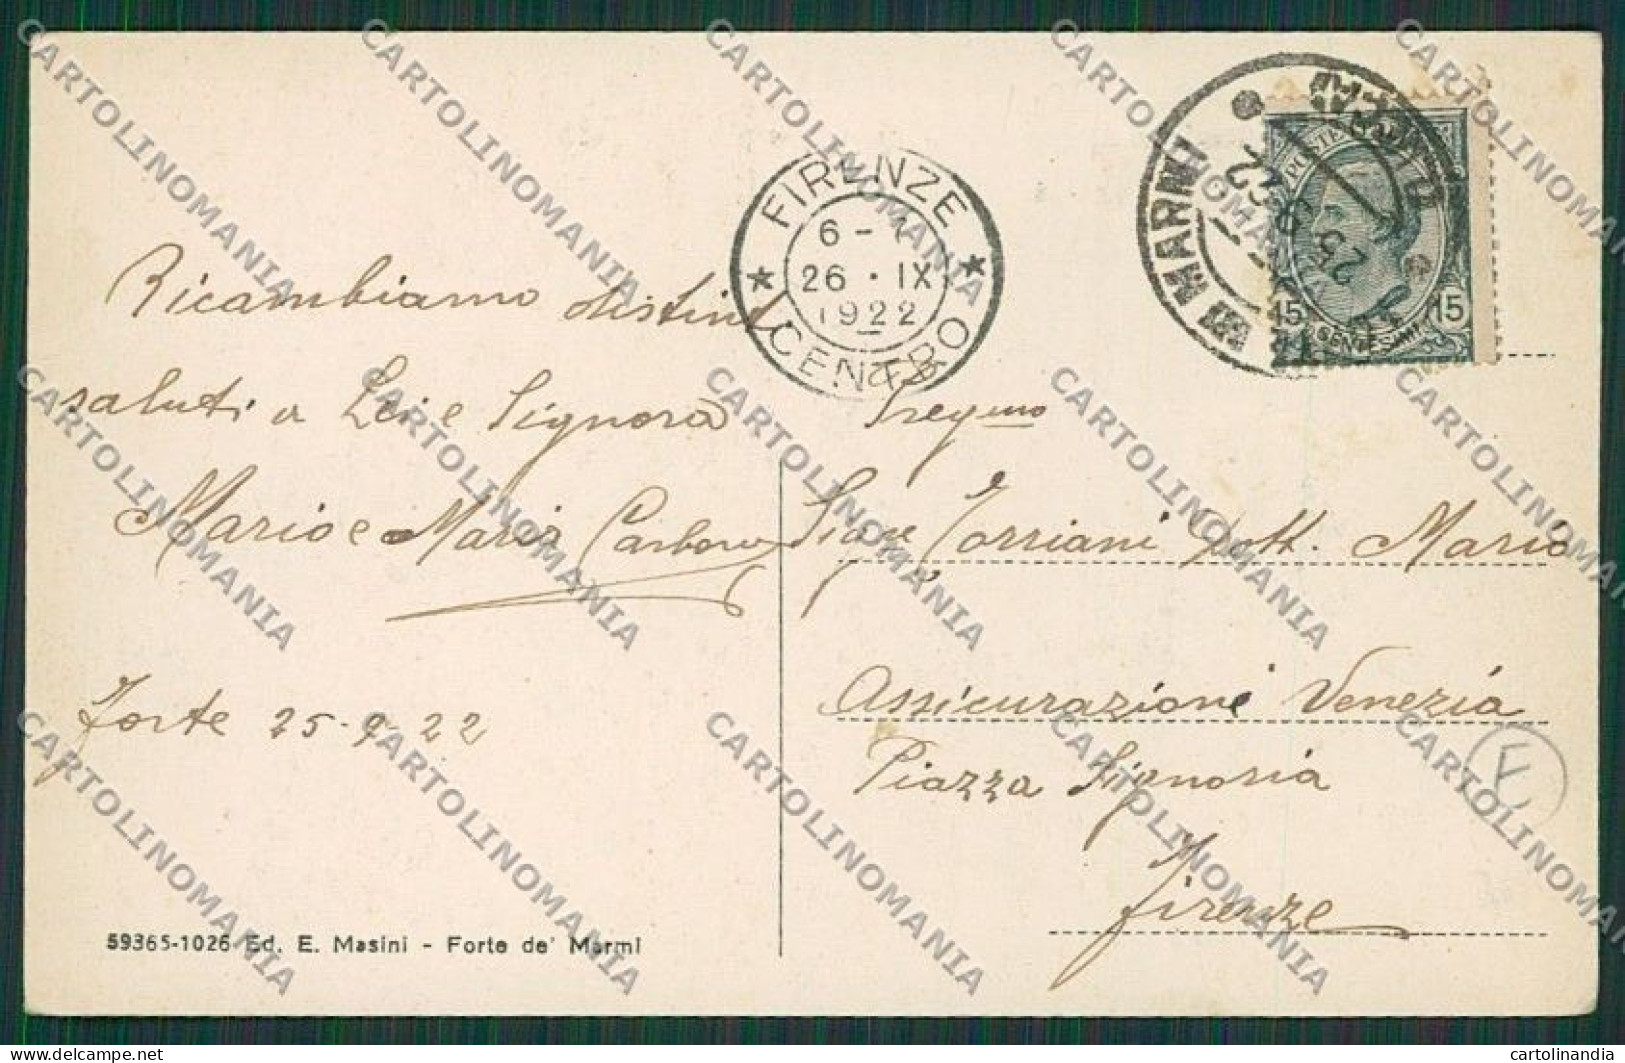 FIRENZE
6 - 7
26 · IX
1922
CENTRO
MARMI
25 9 22
LUCCA
POSTE
15 15
CENTESIMI
Ricambiamo distinti
saluti a Lei e Signora
Mario e Maria
Forte 25-9-22
Torriani Dott. Mario
Assicurazione Venezia
Piazza Signoria
Firenze
59365-1026 Ed. E. Masini - Forte de' Marmi
CARTOLINOMANIA
delcampe.net
cartolinandia